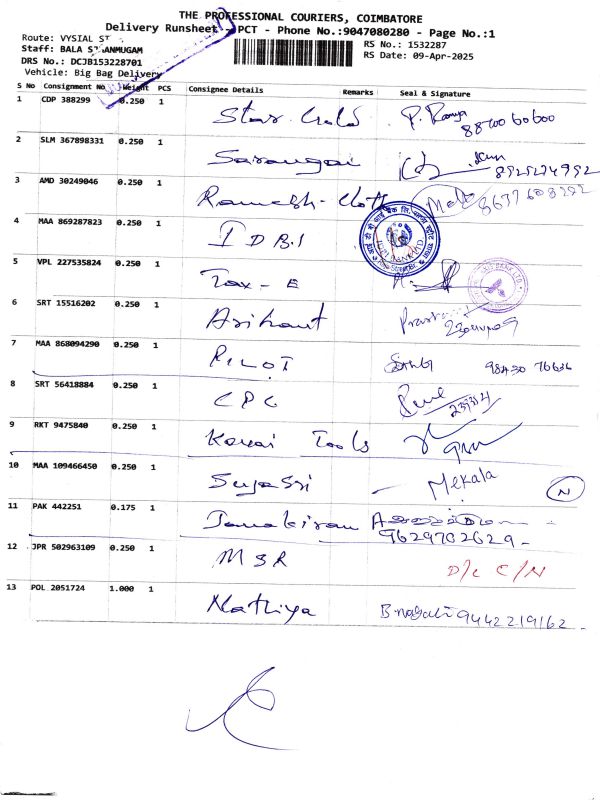 THE PROFESSIONAL COURIERS, COIMBATORE
Delivery Runsheet - PCT - Phone No.:9047080280 - Page No.:1
Route: VYSIAL ST
RS No.: 1532287
Staff: BALA SHANMUGAM
RS Date: 09-Apr-2025
DRS No.: DCJB153228701
Vehicle: Big Bag Delivery
S No Consignment No. Weight PCS Consignee Details Remarks Seal & Signature
1 CDP 388299 0.250 1 Star Gold P. Ramya
2 SLM 367898331 0.250 1 Sarangai
3 AMD 30249046 0.250 1 Ramesh - Cloth
4 MAA 869287823 0.250 1 IDBI
5 VPL 227535824 0.250 1 Tax - E
6 SRT 15516202 0.250 1 Arihant
7 MAA 868094290 0.250 1 PILOT 98430 76636
8 SRT 56418884 0.250 1 CPC
9 RKT 9475840 0.250 1 Kovai Tools
10 MAA 109466450 0.250 1 Sujasri Mekala N
11 PAK 442251 0.175 1 Janakiram
9629702629
12 JPR 502963109 0.250 1 MSR D/L C/N
13 POL 2051724 1.000 1 Nathiya 9442219162